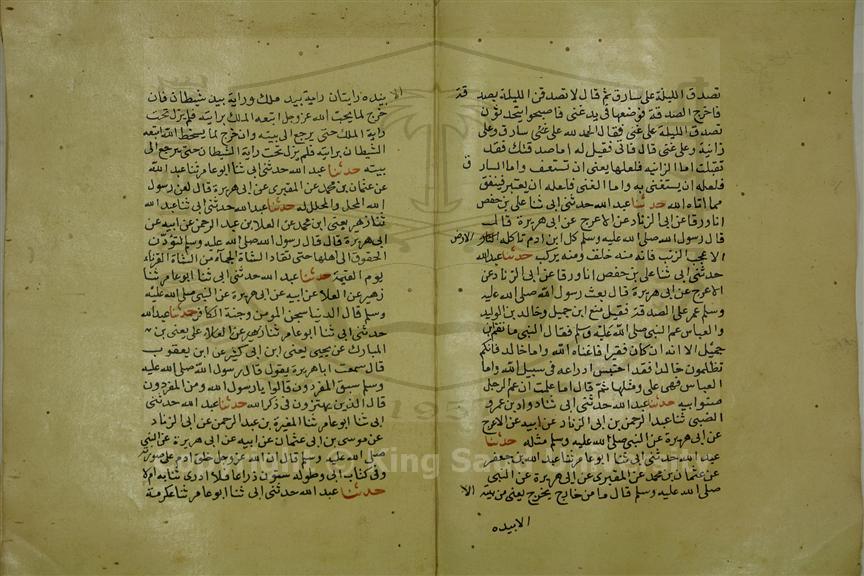 تصدق الليلة على سارق ثم قال لا تصدقن الليلة بصدقة
فاخرج الصدقة فوضعها في يد غني فاصبحوا يتحدثون
تصدق الليلة على غني فقال الحمد لله على غني سارق وعلى
زانية وعلى غني قال فاتى فقيل له اما صدقتك فقد
تقبلت اما الزانيه فلعلها يعني ان تستعف واما السارق
فلعله ان يستغني به واما الغني فلعله ان يعتبر فينفق
مما اتاه الله حدثنا عبد الله حدثني ابي ثنا علي بن حفص
انا ورقا عن ابي الزناد عن الاعرج عن ابي هريرة قال
قال رسول الله صلى الله عليه وسلم كل ابن ادم تاكله الارض
الا عجب الذنب فانه منه خلق ومنه يركب حدثنا عبد الله
حدثني ابي ثنا علي بن حفص انا ورقا عن ابي الزناد عن
الاعرج عن ابي هريرة قال بعث رسول الله صلى الله عليه
وسلم عمر على الصدقة فقيل منع ابن جميل وخالد بن الوليد
والعباس عم النبي صلى الله عليه وسلم فقال النبي ما نقم ابن
جميل الا انه ان كان فقيرا فاغناه الله واما خالد فانكم
تظلمون خالدا فقد احتبس ادراعه في سبيل الله واما
العباس فهي علي ومثلها ثم قال اما علمت ان عم الرجل
صنو ابيه حدثنا عبد الله حدثني ابي ثنا داود بن عمرو
الضبي ثنا عبد الرحمن بن ابي الزناد عن ابيه عن الاعرج
عن ابي هريرة عن النبي صلى الله عليه وسلم مثله حدثنا
عبد الله حدثني ابي ثنا ابو عامر ثنا عبد الله بن جعفر
عن عثمان بن محمد عن المقبري عن ابي هريرة عن النبي
صلى الله عليه وسلم قال ما من خارج يخرج يعني من بيته الا
الا بيده
بيده رايتان راية بيد ملك وراية بيد شيطان فان
خرج لما يحب الله عز وجل اتبعه الملك برايته فلم يزل تحت
راية الملك حتى يرجع الى بيته وان خرج لما يسخط الله اتبعه
الشيطان برايته فلم يزل تحت راية الشيطان حتى يرجع الى
بيته حدثنا عبد الله حدثني ابي ثنا ابو عامر ثنا عبد الله
عن عثمان بن محمد عن المقبري عن ابي هريرة قال لعن رسول
الله المحل والمحلل له حدثنا عبد الله حدثني ابي ثنا عبد الله
ثنا زهير يعني ابن محمد عن العلا بن عبد الرحمن عن ابيه عن
ابي هريرة قال قال رسول الله صلى الله عليه وسلم لتؤدن
الحقوق الى اهلها حتى تقاد الشاة الجماء من الشاة القرناء
يوم القيمة حدثنا عبد الله حدثني ابي ثنا ابو عامر ثنا
زهير عن العلا عن ابيه عن ابي هريرة عن النبي صلى الله عليه
وسلم قال الدنيا سجن المومن وجنة الكافر حدثنا عبد الله
حدثني ابي ثنا ابو عامر ثنا زهير عن العلا علي يعني بن
المبارك عن يحيى يعني ابن ابي كثير عن ابن يعقوب
قال سمعت ابا هريرة يقول قال رسول الله صلى الله عليه
وسلم سبق المفردون قالوا يا رسول الله ومن المفردون
قال الذين يهتزون في ذكر الله حدثنا عبد الله حدثني
ابي ثنا ابو عامر ثنا المغيرة بن عبد الرحمن عن ابي الزناد
عن موسى بن ابي عثمان عن ابيه عن ابي هريرة عن النبي
صلى الله عليه وسلم قال ان الله عز وجل خلق ادم على صورته
وفي كتاب ابي وطوله ستون ذراعا فلا ادري شابه ام لا
حدثنا عبد الله حدثني ابي ثنا ابو عامر ثنا عكرمة
1957
King Saud